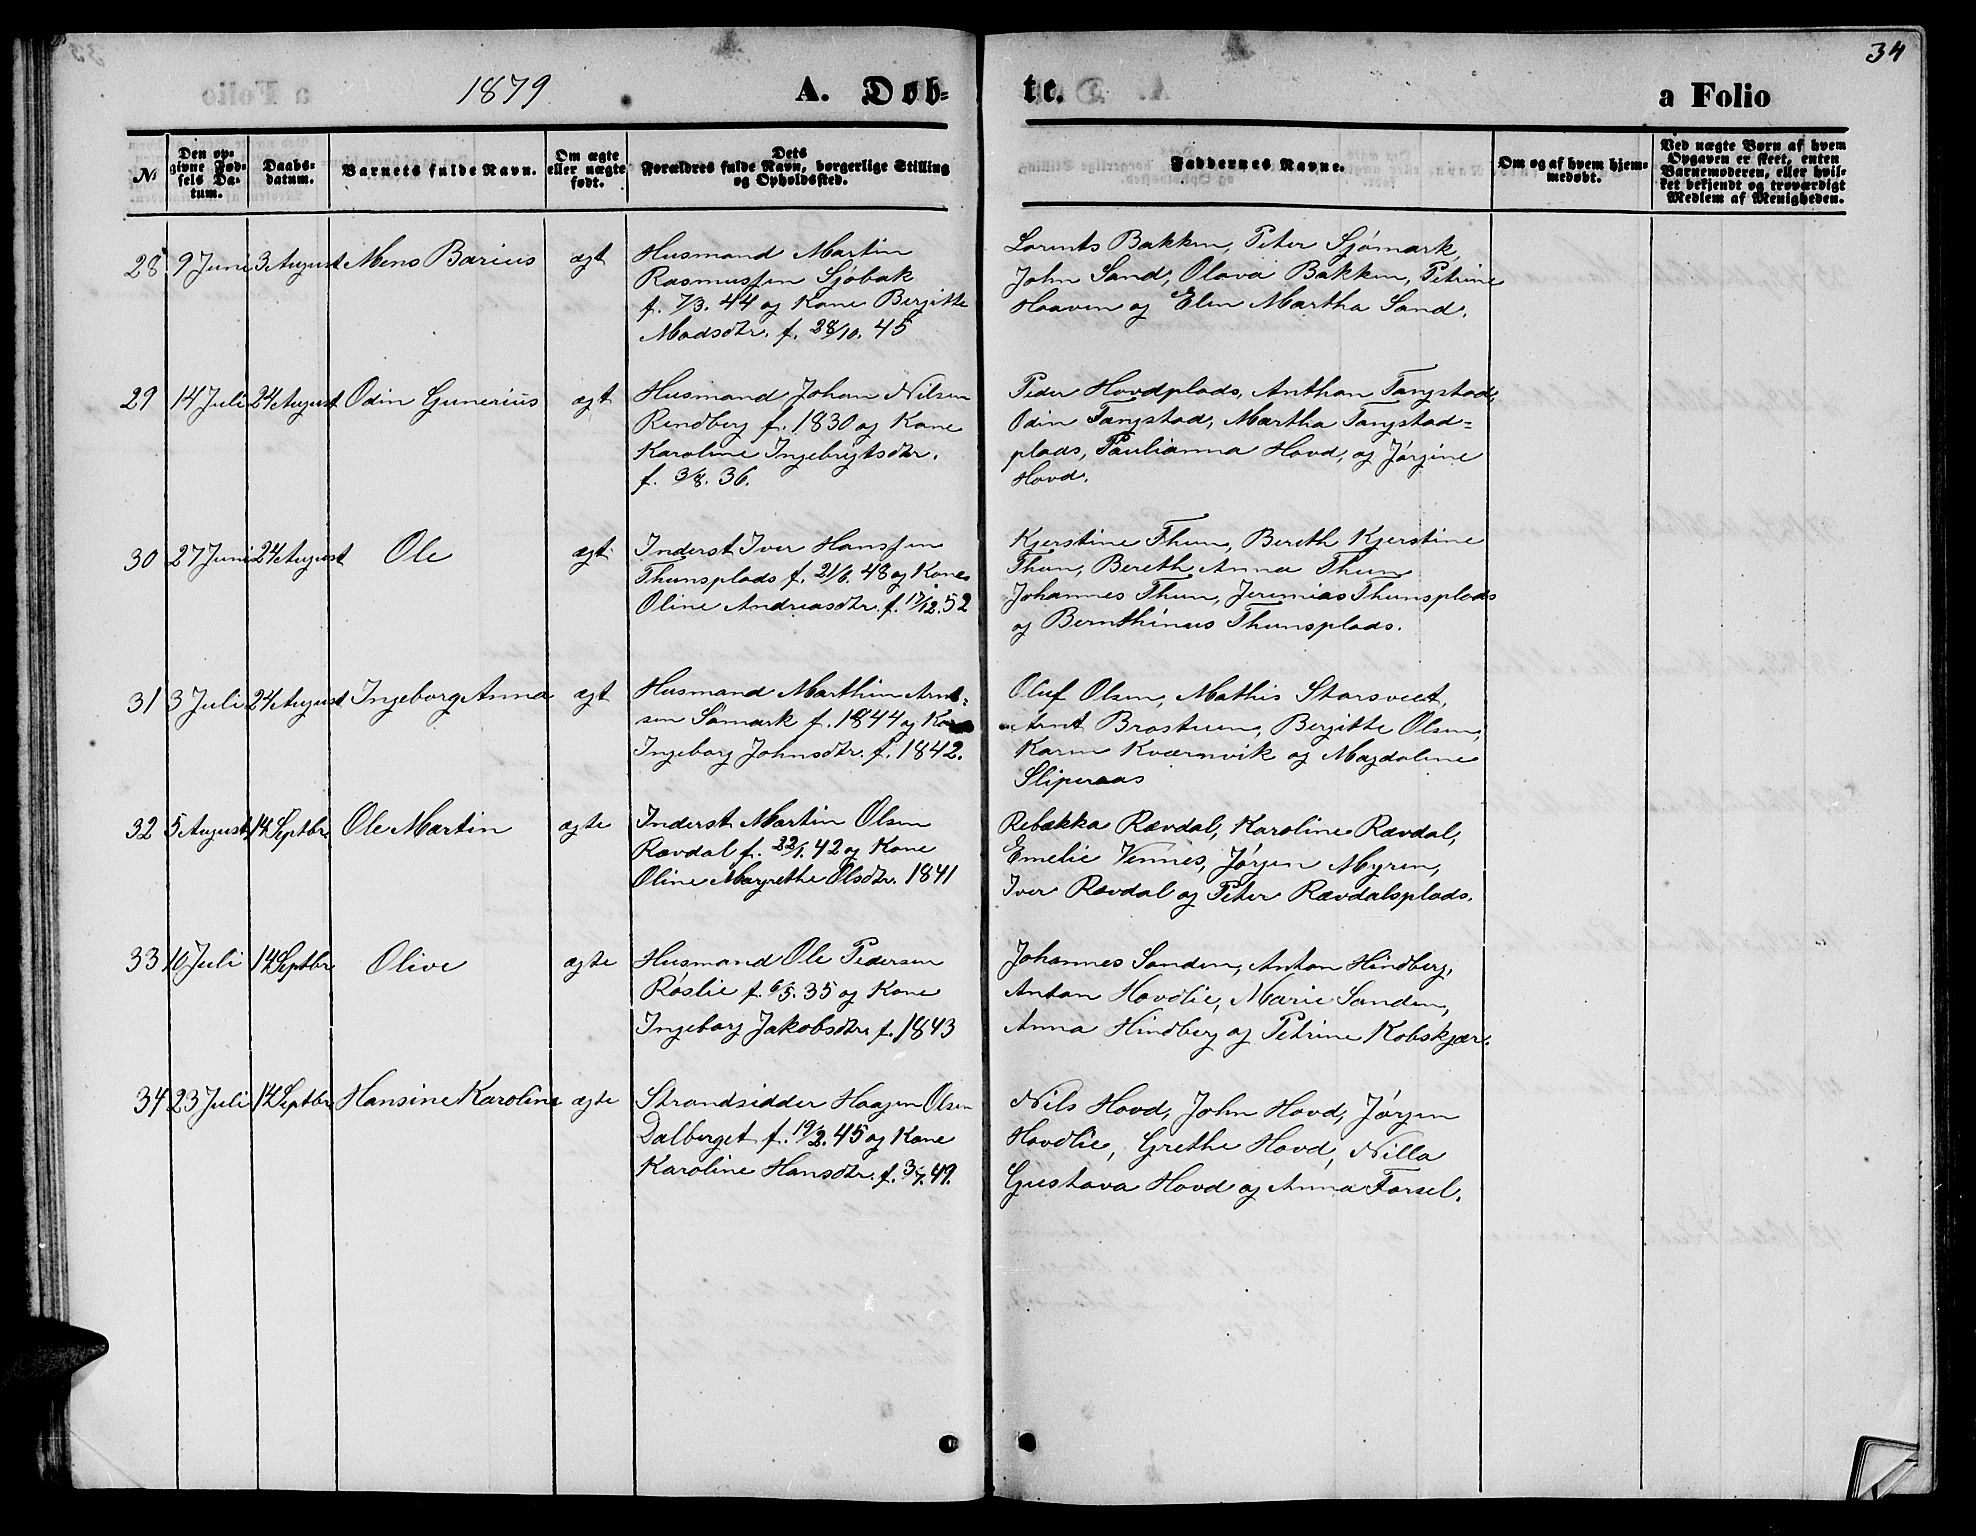 34
1879 A. Døb- te. a Folio
№ Den op-givne Fød-sels Da-tum. Daabs-datum. Barnets fulde Navn. Om ægte eller uægte født. Dets Forældres fulde Navn, borgerlige Stilling og Opholdssted. Faddernes Navne. Om og af hvem hjem-medøbt. Ved uægte Børn af hvem Opgaven er skeet, enten Barnemoderen, eller hvil-ket bekjendt og troværdigt Medlem af Menigheden.
28 9 Juni 3 August Mens Barius ægt Husmand Martin
Rasmussen Sjøbak
f. 7/3. 44 og Kone Bergitte
Madsdtr. f. 28/10. 45
Lorents Bakken, Peter Sjømark,
John Sand, Olava Bakken, Petrine
Haaven og Elen Martha Sand.
29 14 Juli 24 August Odin Gunerius ægt Husmand Johan Nilsen
Rendberg f. 1830 og Kone
Karoline Ingebrigtsdtr.
f. 3/8. 36.
Peder Hovdplads, Anthon Tangstad,
Odin Tangstad, Martha Tangstad=
plads, Paulianna Hovd, og Jørgine
Hovd.
30 27 Juni 24 August Ole ægt. Inderst Iver Hanssen
Thunsplads f. 21/6. 48 og Kone
Oline Andreasdtr. f. 17/12. 52
Kjerstine Thun, Bereth Kjerstine
Thun, Bereth Anna Thun
Johannes Thun, Jeremias Thunsplads
og Bernthinus Thunsplads.
31 3 Juli 24 August Ingeborg Anna ægt Husmand Marthin Arnt=
sen Sømark f. 1844 og Kone
Ingeborg Johnsdtr. f. 1842.
Oluf Olsen, Mathis Storsveet,
Arnt Brostuen, Bergitte Olsen,
Karen Kværnvik og Magdalene
Sliperaas
32 5 August 14 Septbr. Ole Martin ægte Inderst Martin Olsen
Rævdal f. 22/1. 42 og Kone
Oline Margrethe Olsdtr. 1841
Rebækka Rævdal, Karoline Rævdal,
Emelie Vennes, Jørgen Myren,
Iver Rævdal og Peter Rævdalsplads.
33 10 Juli 14 Septbr. Olive ægte Husmand Ole Pedersen
Røslie f. 6/5. 35 og Kone
Ingeborg Jakobsdtr. f. 1843
Johannes Sanden, Anton Hindberg,
Anton Hovdlie, Marie Sanden,
Anna Hindberg og Petrine Kobskjær.
34 23 Juli 14 Septbr. Hansine Karoline ægte Strandsidder Haagen Olsen
Dalberget f. 19/2. 45 og Kone
Karoline Hansdtr. f. 3/7. 49.
Nils Hovd, John Hovd, Jørgen
Hovdlie, Grethe Hovd, Nilla
Gustava Hovd og Anna Forsel.